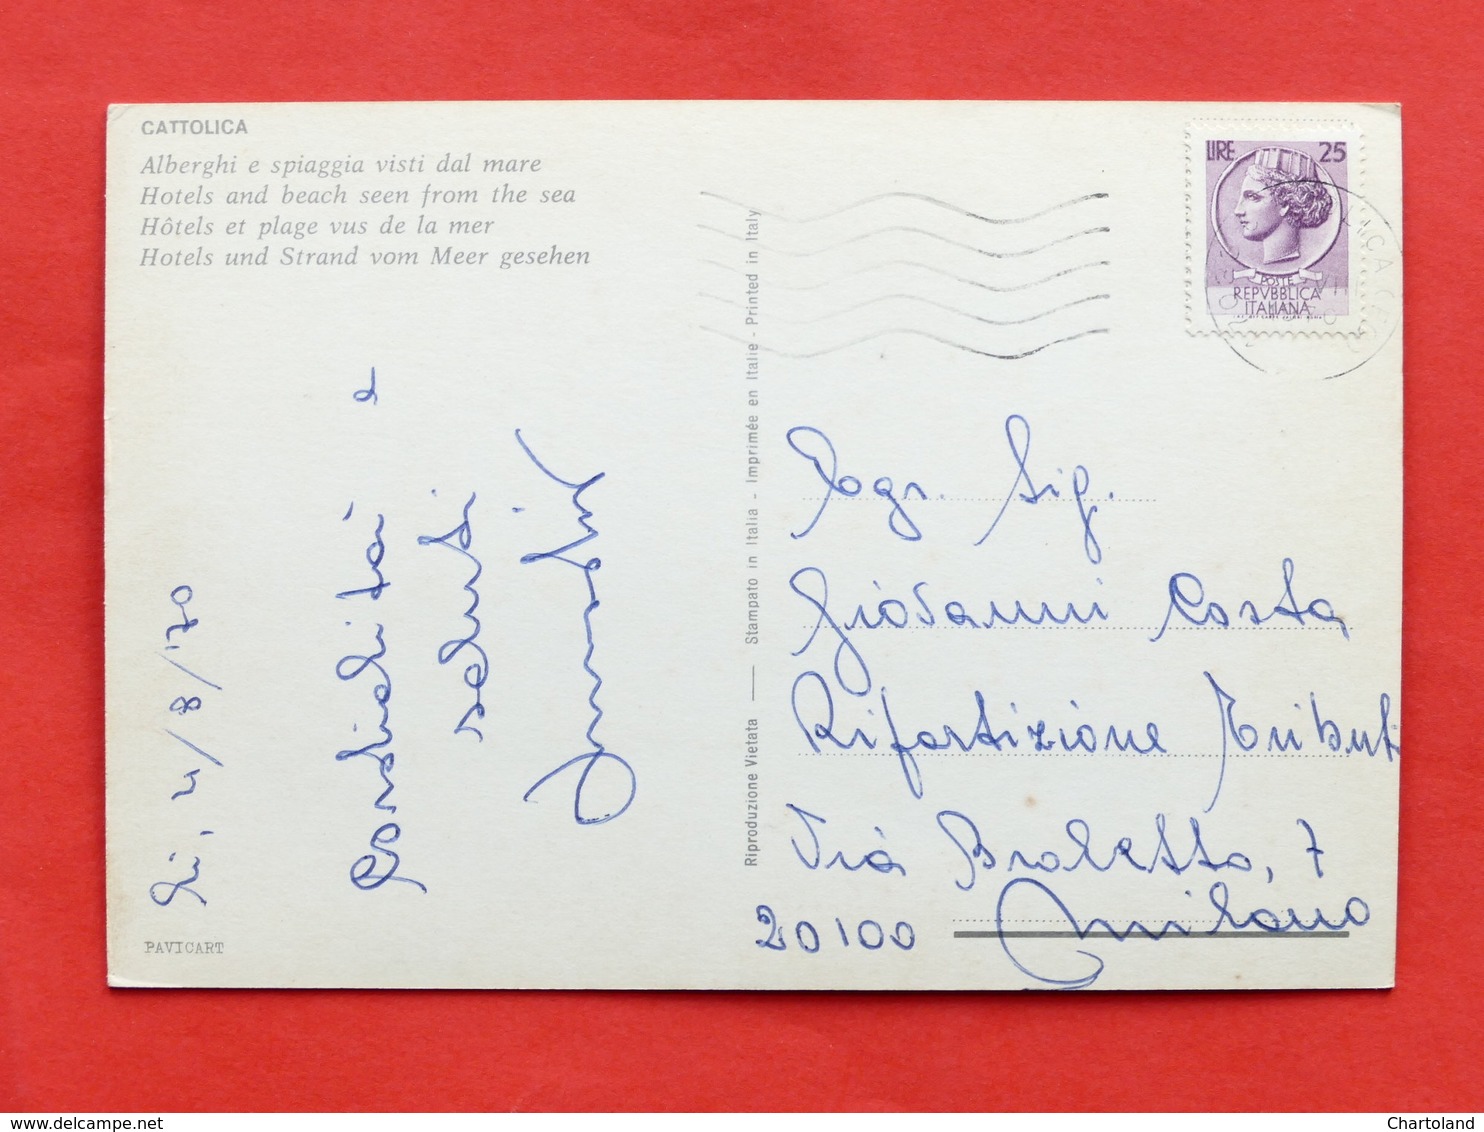 CATTOLICA
Alberghi e spiaggia visti dal mare
Hotels and beach seen from the sea
Hôtels et plage vus de la mer
Hotels und Strand vom Meer gesehen
Li, 4/8/'70
Cordialità e
saluti
PAVICART
Riproduzione Vietata — Stampato in Italia - Imprimée en Italie - Printed in Italy
LIRE 25
POSTE
REPVBBLICA
ITALIANA
Sig.
Giovanni Costa
Ripartizione Tributi
Via Broletto, 7
20100 Milano
Chartoland